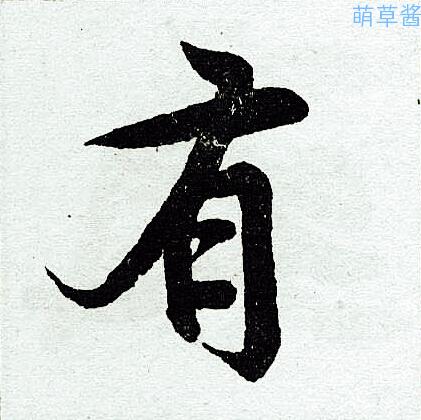 萌草酱
有